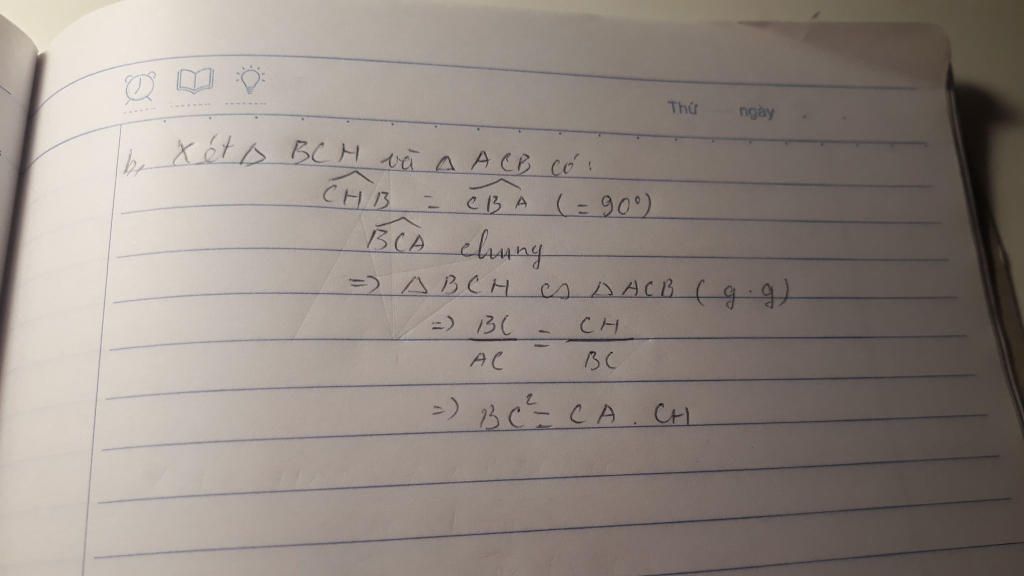 Thứ ngày
b, Xét Δ BCH và Δ ACB có:
$\widehat{CHB}$ = $\widehat{CBA}$ (= 90°)
$\widehat{BCA}$ chung
=> Δ BCH ∽ Δ ACB ( g.g)
=> $\frac{BC}{AC}$ = $\frac{CH}{BC}$
=> BC² = CA . CH